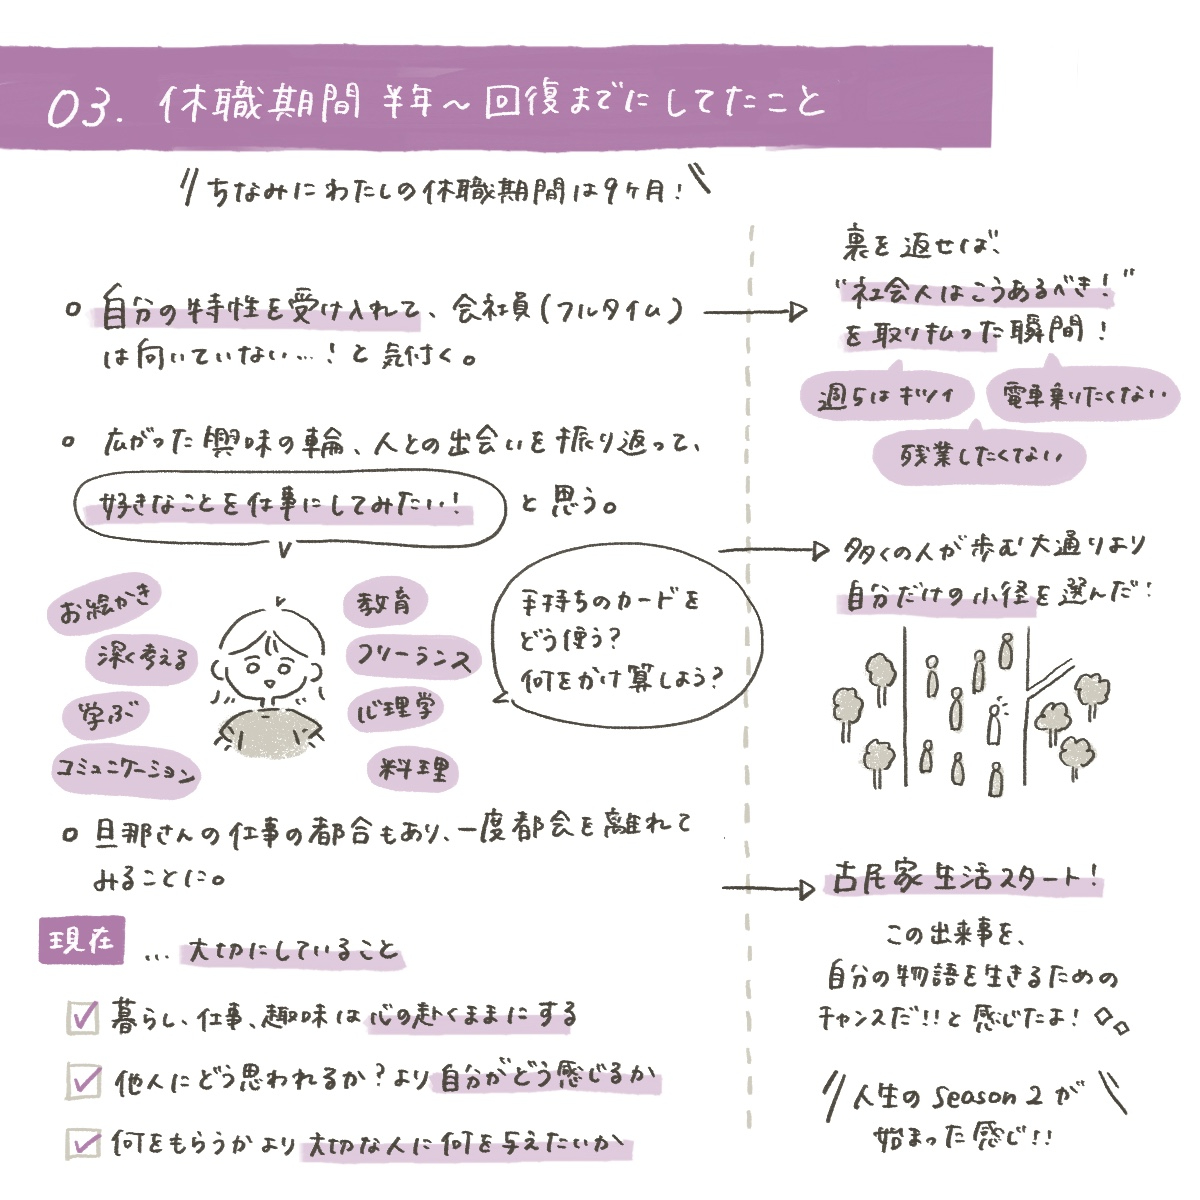 03. 休職期間 半年〜回復までにしてたこと
ちなみにわたしの休職期間は9ヶ月!
自分の特性を受け入れて、会社員(フルタイム)
は向いていない…!と気付く。
裏を返せば、
"社会人はこうあるべき!"
を取り払った瞬間!
週5はキツイ
電車乗りたくない
残業したくない
広がった興味の輪、人との出会いを振り返って、
好きなことを仕事にしてみたい!
と思う。
お絵かき
深く考える
学ぶ
コミュニケーション
教育
フリーランス
心理学
料理
手持ちのカードを
どう使う?
何をかけ算しよう?
多くの人が歩む大通りより
自分だけの小径を選んだ!
旦那さんの仕事の都合もあり、一度都会を離れて
みることに。
古民家生活スタート!
この出来事を、
自分の物語を生きるための
チャンスだ!!と感じたよ!
人生のSeason2が
始まった感じ!!
現在
…大切にしていること
暮らし、仕事、趣味は心の赴くままにする
他人にどう思われるか?より自分がどう感じるか
何をもらうかより大切な人に何を与えたいか